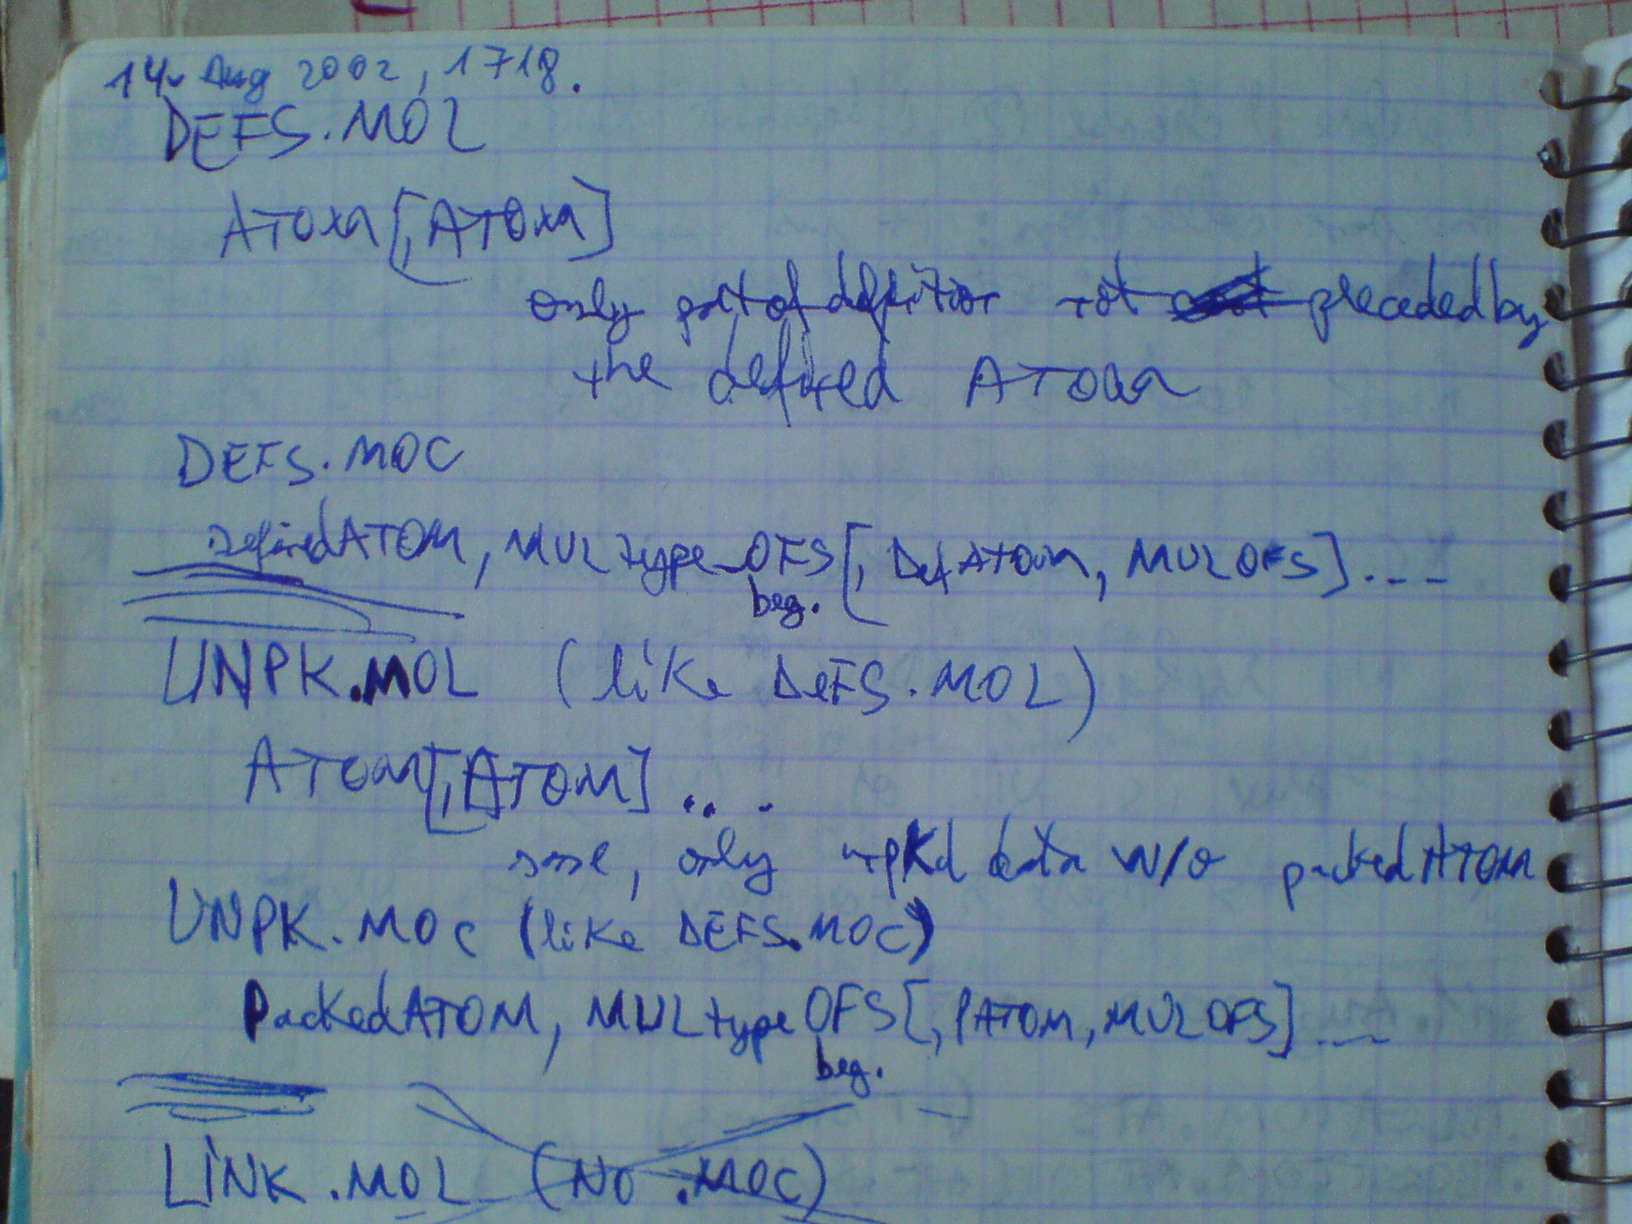 14. Aug 2002, 1718.
DEFS.MOL
ATOM[,ATOM]
only part of definition not preceded by
the defined ATOM
DEFS.MOC
DefinedATOM, MULtypeOFS[, DefATOM, MULOFS]...
beg.
UNPK.MOL (like DEFS.MOL)
ATOM[,ATOM]...
only unpKd data w/o packedATOM
UNPK.MOC (like DEFS.MOC)
PackedATOM, MULtypeOFS[,PATOM,MULOFS]...
beg.
LINK.MOL (No .MOC)